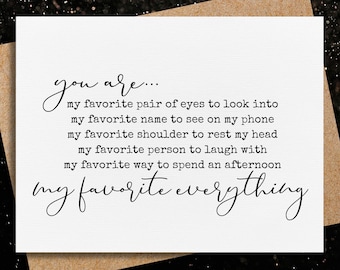 you are...
my favorite pair of eyes to look into
my favorite name to see on my phone
my favorite shoulder to rest my head
my favorite person to laugh with
my favorite way to spend an afternoon
my favorite everything